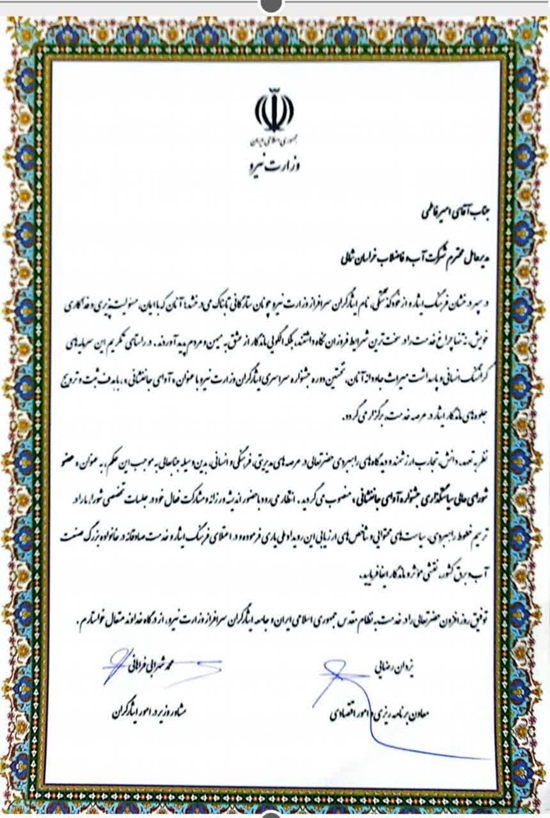 جمهوری اسلامی ایران
وزارت نیرو
جناب آقای امیر فاطمی
مدیرعامل محترم شرکت آب و فاضلاب خراسان شمالی
در سپهر درخشان فرهنگ ایثار و از خودگذشتگی، نام ایثارگران سرافراز وزارت نیرو چونان ستارگانی تابناک می‌درخشد؛ آنان که با ایمان، مسئولیت‌پذیری و فداکاری
خویش، نه تنها چراغ خدمت را در سخت‌ترین شرایط فروزان نگاه داشتند، بلکه الگویی ماندگار از عشق به میهن و مردم پدید آوردند. در راستای تکریم این سرمایه‌های
گرانسنگ انسانی و پاسداشت میراث جاودانه آنان، نخستین دوره جشنواره سراسری ایثارگران وزارت نیرو با عنوان «آوای جانفشانی»، با هدف ثبت و ترویج
جلوه‌های ماندگار ایثار در عرصه خدمت، برگزار می‌گردد.
نظر به تعهد، دانش، تجارب ارزشمند و دیدگاه‌های راهبردی حضرتعالی در عرصه‌های مدیریتی، فرهنگی و انسانی، بدین‌وسیله جنابعالی به موجب این حکم، به عنوان «عضو
شورای عالی سیاستگذاری جشنواره آوای جانفشانی» منصوب می‌گردید. انتظار می‌رود با حضور اندیشه‌ورزانه و مشارکت فعال خود در جلسات تخصصی شورا، ما را در
ترسیم خطوط راهبردی، سیاست‌های محتوایی و شاخص‌های ارزیابی این رویداد ملی یاری فرموده و در اعتلای فرهنگ ایثار و خدمت صادقانه در خانواده بزرگ صنعت
آب و برق کشور، نقشی مؤثر و ماندگار ایفا فرمایید.
توفیق روزافزون حضرتعالی را در خدمت به نظام مقدس جمهوری اسلامی ایران و جامعه ایثارگران سرافراز وزارت نیرو، از درگاه خداوند متعال خواستارم.
یزدان رضایی
معاون برنامه‌ریزی و امور اقتصادی
محمد شهرابی فراهانی
مشاور وزیر در امور ایثارگران